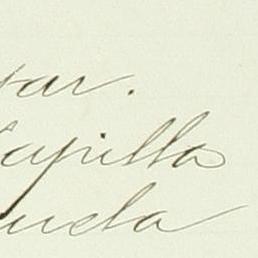 ar.
Capilla
uela